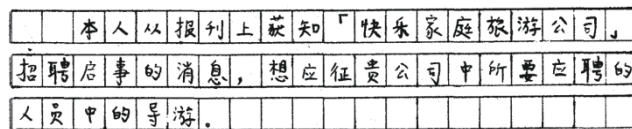 本人从报刊上获知「快乐家庭旅游公司」
招聘启事的消息，想应征贵公司中所要应聘的
人员中的导游。